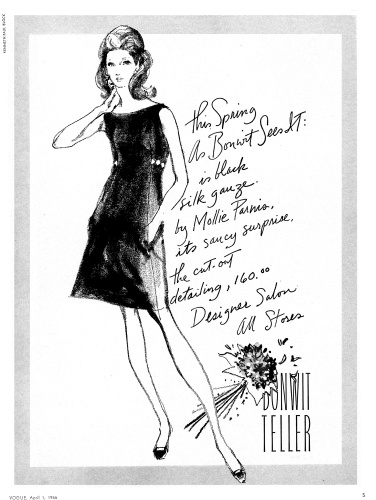 this Spring
As Bonwit Sees It:
is black
silk gauze.
by Mollie Parnis,
its saucy surprise,
the cut-out
detailing, 160.00
Designer Salon
All Stores
BONWIT
TELLER
VOGUE, April 1, 1966
5